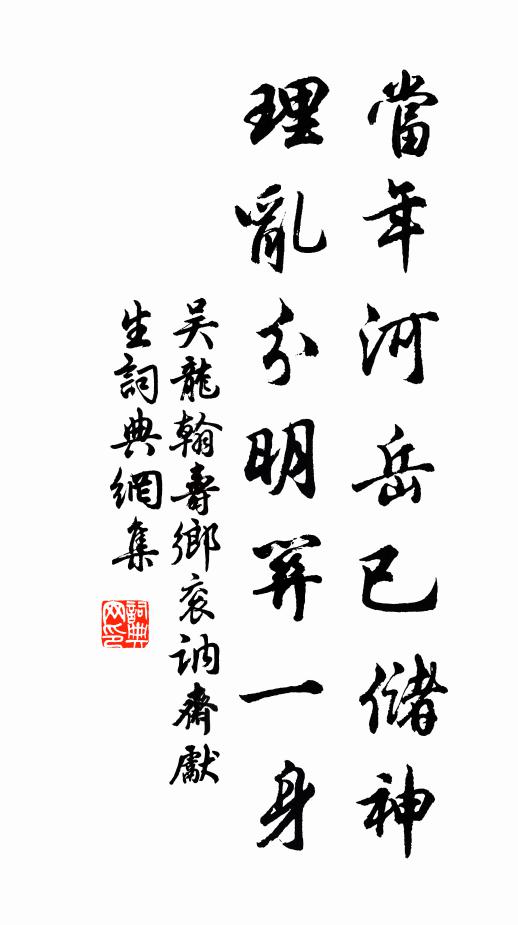 當年河岳已儲神
理亂分明算一身
吴龍翰壽鄉衮訥齋獻
生詞典網集
詞典
网印